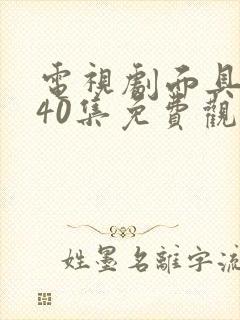 電視劇面具
40集免費觀
姓墨名離字流